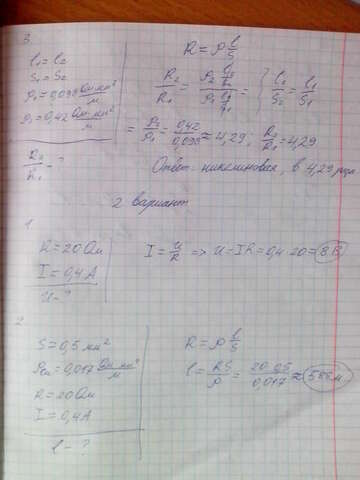 3.
l₁ = l₂
S₁ = S₂
ρ₁ = 0,098 Ом·мм²/м
ρ₂ = 0,42 Ом·мм²/м
R₂/R₁ - ?
R = ρ l/S
= ρ₂/ρ₁ = 0,42/0,098 ≈ 4,29, R₂/R₁ = 4,29
Ответ: никелиновая, в 4,29 раза
2 вариант
1.
R = 20 Ом
I = 0,4 А
U - ?
I = U/R => U = IR = 0,4·20 = 8 В
2.
S = 0,5 мм²
0,017 Ом·мм²/м
R = 20 Ом
I = 0,4 А
l - ?
R = ρ l/S
l = RS/ρ = 20·0,5/0,017 ≈ 588 м